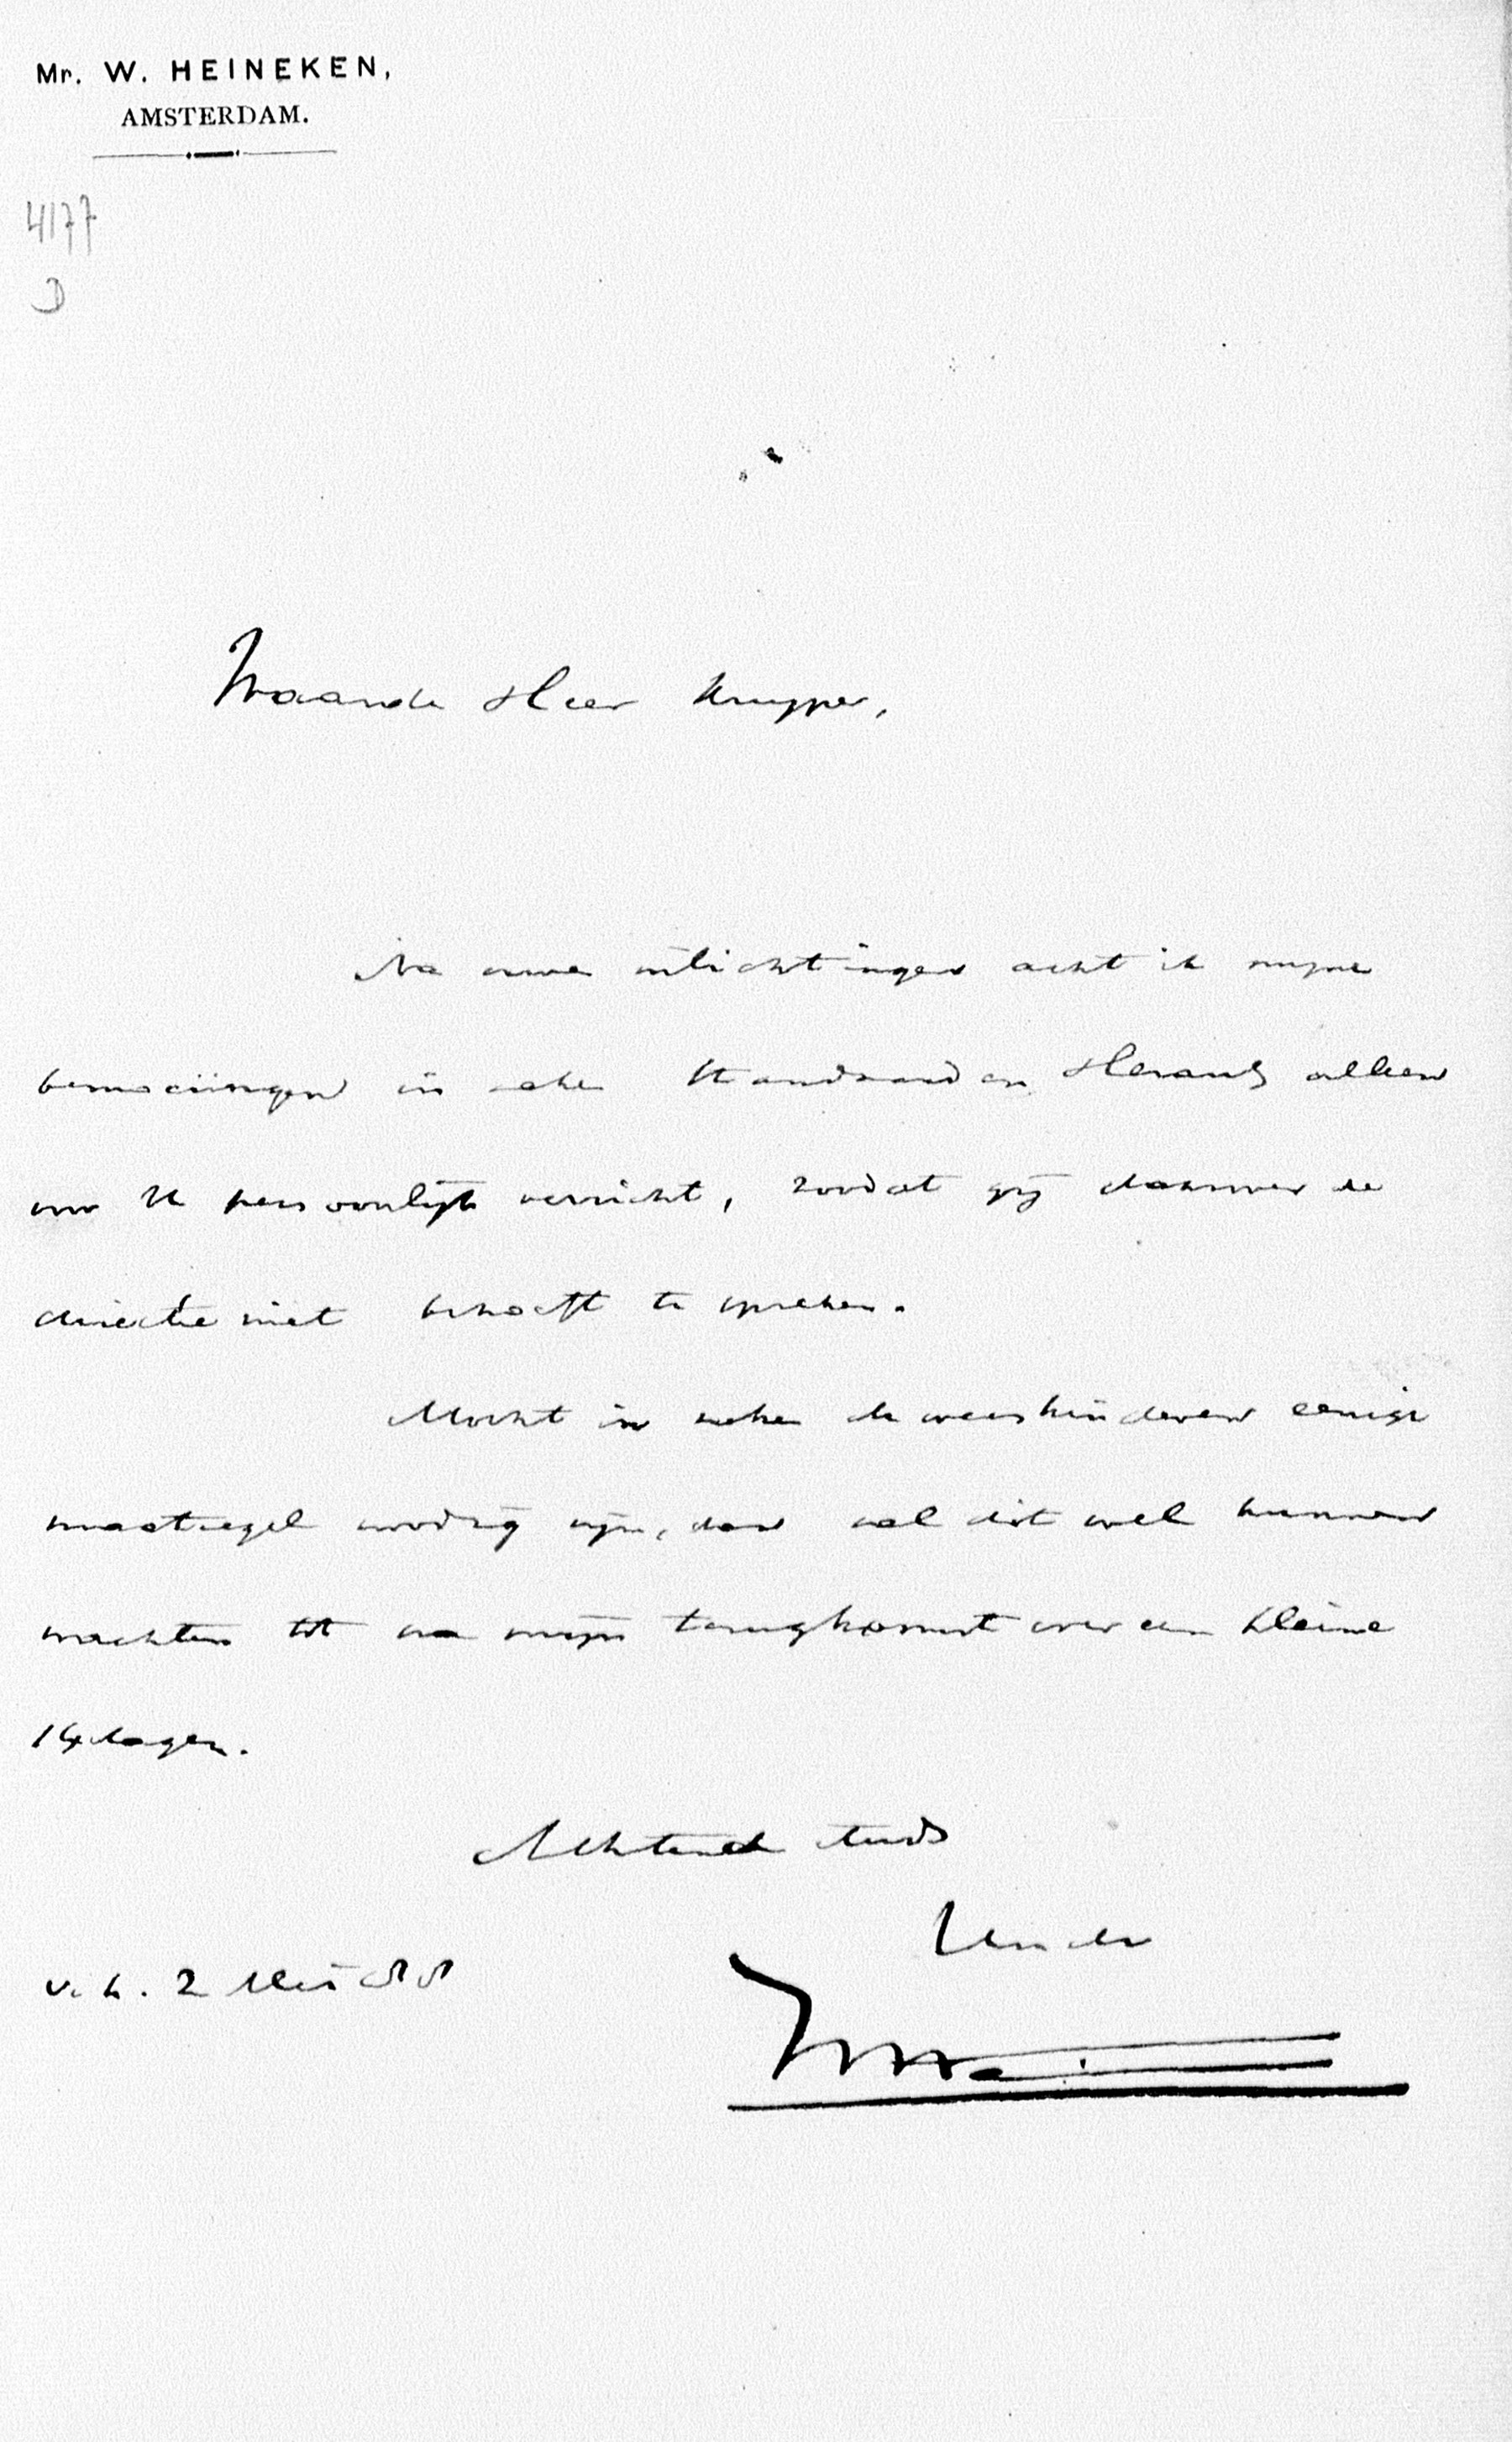 Mr. W. HEINEKEN,
AMSTERDAM.
4177
D
Waarde Heer Kuyper,
Na uwe inlichtingen acht ik mijne
bemoeiingen in zake Standaard en Heraut alleen
voor U persoonlijk verricht, zoodat gij daarover de
directie niet behoeft te spreken.
Mocht in zake de weeskinderen eenige
maatregel noodig zijn, dan zal dit wel kunnen
wachten tot na mijn terugkomst over een kleine
14 dagen.
Achtend steeds
Uwe dw
v. h. 2 Mei 88
WHeineken